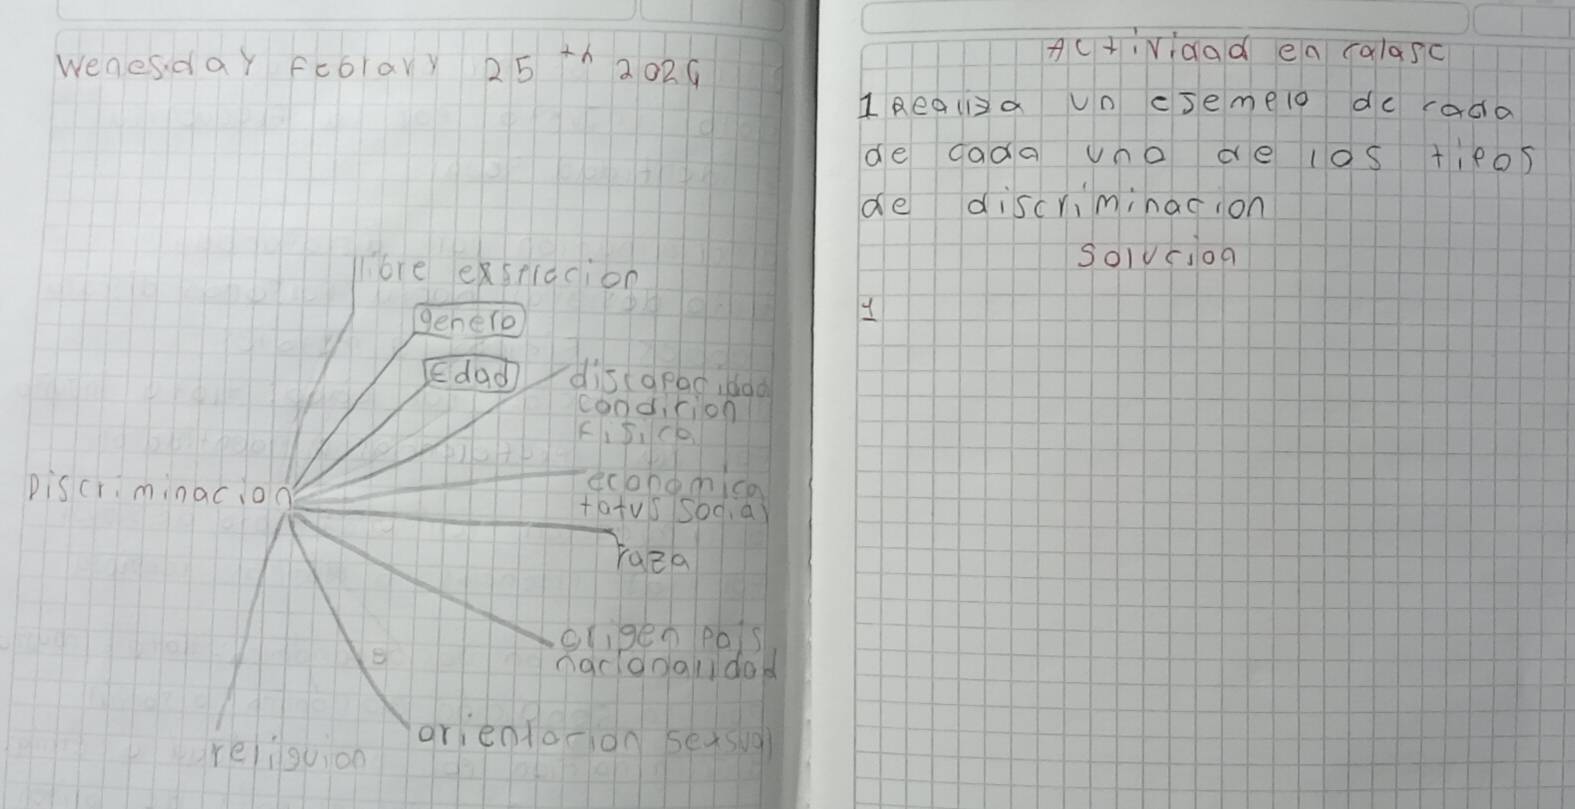 Wenesday Feblary 25 th 2026
libre exspracion
genero
Edad
discapacidad
condicion
fisica
Discriminacion
economica
tatus social
raza
origen pais
nacionalidad
orientacion sexsual
religuion
Actividad en calase
1 Realiza un esemplo de cada
de cada uno de los tipos
de discriminacion
Solucion
1